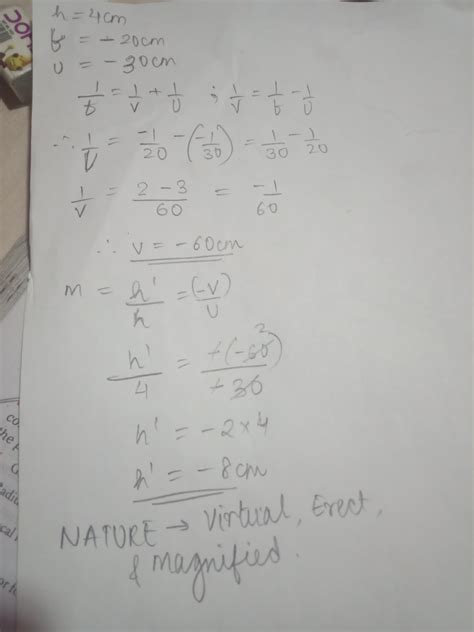 h = 4cm
f = - 20cm
u = - 30cm
1/f = 1/v + 1/u ; 1/v = 1/f - 1/u
∴ 1/v = -1/20 - (-1/30) = 1/30 - 1/20
1/v = 2 - 3/60 = -1/60
∴ v = - 60cm
m = h'/h = (-v/u)
h'/4 = +(-60)2/+30
h' = - 2 × 4
h' = - 8cm
NATURE → Virtual, Erect,
& Magnified.